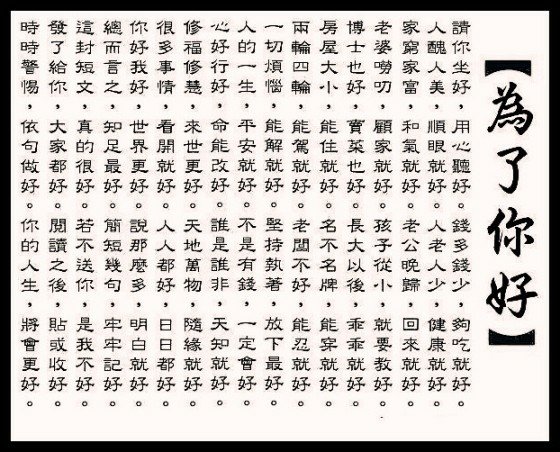 【為了你好】
請你坐好，用心聽好。錢多錢少，夠吃就好。
人醜人美，順眼就好。人老人少，健康就好。
家窮家富，和氣就好。老公晚歸，回來就好。
老婆嘮叨，顧家就好。孩子從小，就要教好。
博士也好，賣菜也好。長大以後，乖乖就好。
房屋大小，能住就好。名不名牌，能穿就好。
兩輪四輪，能駕就好。老闆不好，能忍就好。
一切煩惱，能解就好。堅持執著，放下最好。
人的一生，平安就好。不是有錢，一定會好。
心好行好，命能改好。誰是誰非，天知就好。
修福修慧，來世更好。天地萬物，隨緣就好。
很多事情，看開就好。人人都好，日日都好。
你好我好，世界更好。說那麼多，明白就好。
總而言之，知足最好。簡短幾句，牢牢記好。
這封短文，真的很好。若不送你，是我不好。
發了給你，大家都好。閱讀之後，貼或收好。
時時警惕，依句做好。你的人生，將會更好。